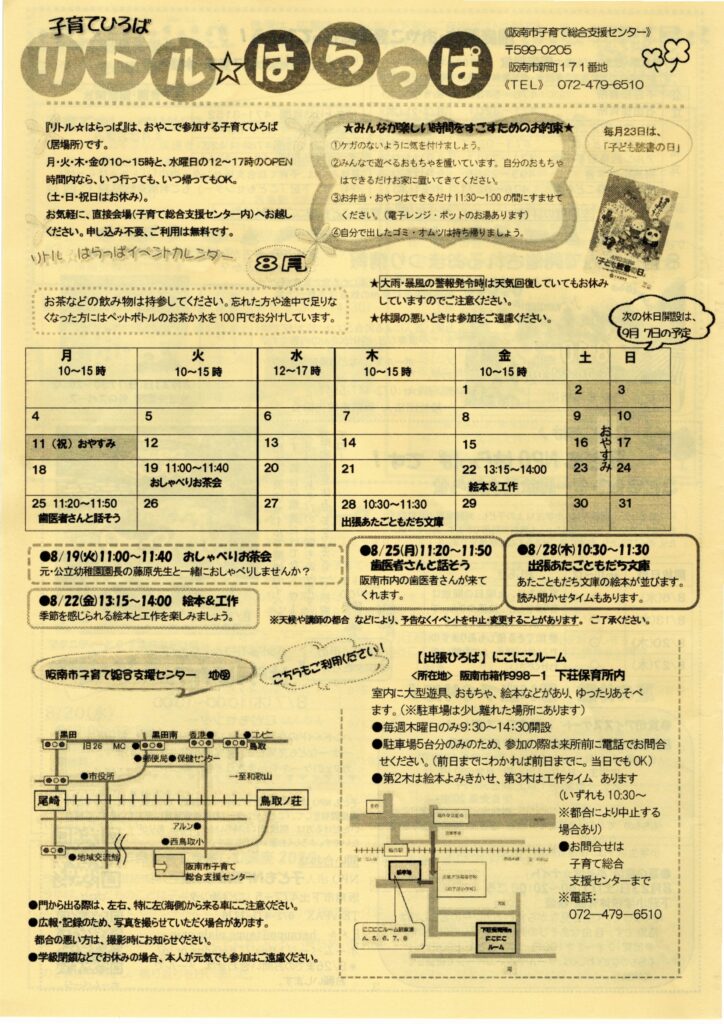 子育てひろば
リトル☆はらっぱ
《阪南市子育て総合支援センター》
〒599-0205
阪南市新町171番地
《TEL》 072-479-6510
『リトル☆はらっぱ』は、おやこで参加する子育てひろば
(居場所)です。
月・火・木・金の10～15時と、水曜日の12～17時のOPEN
時間内なら、いつ行っても、いつ帰ってもOK。
(土・日・祝日はお休み)。
お気軽に、直接会場(子育て総合支援センター内)へお越し
ください。申し込み不要、ご利用は無料です。
★みんなが楽しい時間をすごすためのお約束★
①ケガのないように気を付けましょう。
②みんなで遊べるおもちゃを置いています。自分のおもちゃ
はできるだけお家に置いてきてください。
③お弁当・おやつはできるだけ11:30～1:00の間にすませて
ください。(電子レンジ・ポットのお湯あります)
④自分で出したゴミ・オムツは持ち帰りましょう。
毎月23日は、
「子ども読書の日」
「子ども読書の日」
リトル はらっぱイベントカレンダー
8月
お茶などの飲み物は持参してください。忘れた方や途中で足りな
くなった方にはペットボトルのお茶か水を100円でお分けしています。
★大雨・暴風の警報発令時は天気回復していてもお休み
していますのでご注意ください。
★体調の悪いときは参加をご遠慮ください。
次の休日開設は、
9月7日の予定
月 火 水 木 金 土 日
10～15時 10～15時 12～17時 10～15時 10～15時
1 2 3
4 5 6 7 8 9 10
11(祝)おやすみ 12 13 14 15 16 17
おやすみ
18 19 11:00～11:40 20 21 22 13:15～14:00 23 24
おしゃべりお茶会 絵本&工作
25 11:20～11:50 26 27 28 10:30～11:30 29 30 31
歯医者さんと話そう 出張あたごともだち文庫
●8/19(火)11:00～11:40 おしゃべりお茶会
元・公立幼稚園園長の藤原先生と一緒におしゃべりしませんか?
●8/22(金)13:15～14:00 絵本&工作
季節を感じられる絵本と工作を楽しみましょう。
●8/25(月)11:20～11:50
歯医者さんと話そう
阪南市内の歯医者さんが来て
くれます。
●8/28(木)10:30～11:30
出張あたごともだち文庫
あたごともだち文庫の絵本が並びます。
読み聞かせタイムもあります。
※天候や講師の都合 などにより、予告なくイベントを中止・変更することがあります。 ご了承ください。
阪南市子育て総合支援センター 地図
こちらもご利用ください!
黒田
黒田南
香港●
●コンビニ
旧26
MC
鳥取
●郵便局
●保健センター
●市役所
→至和歌山
尾崎
鳥取ノ荘
アルン●
●西鳥取小
●地域交流館
阪南市子育て
総合支援センター
●門から出る際は、左右、特に左(海側)から来る車にご注意ください。
●広報・記録のため、写真を撮らせていただく場合があります。
都合の悪い方は、撮影時にお知らせください。
●学級閉鎖などでお休みの場合、本人が元気でも参加はご遠慮ください。
【出張ひろば】にこにこルーム
<所在地> 阪南市箱作998-1 下荘保育所内
室内に大型遊具、おもちゃ、絵本などがあり、ゆったりあそべ
ます。(※駐車場は少し離れた場所にあります)
●毎週木曜日のみ9:30～14:30開設
●駐車場5台分のみのため、参加の際は来所前に電話でお問合
せください。(前日までにわかれば前日までに。当日でもOK)
●第2木は絵本よみきかせ、第3木は工作タイム あります
(いずれも10:30～
※都合により中止する
場合あり)
●お問合せは
子育て総合
支援センターまで
※電話:
072―479-6510
駐車場
にこにこルーム駐車場
4、5、6、7、8
下荘保育所内
にこにこ
ルーム